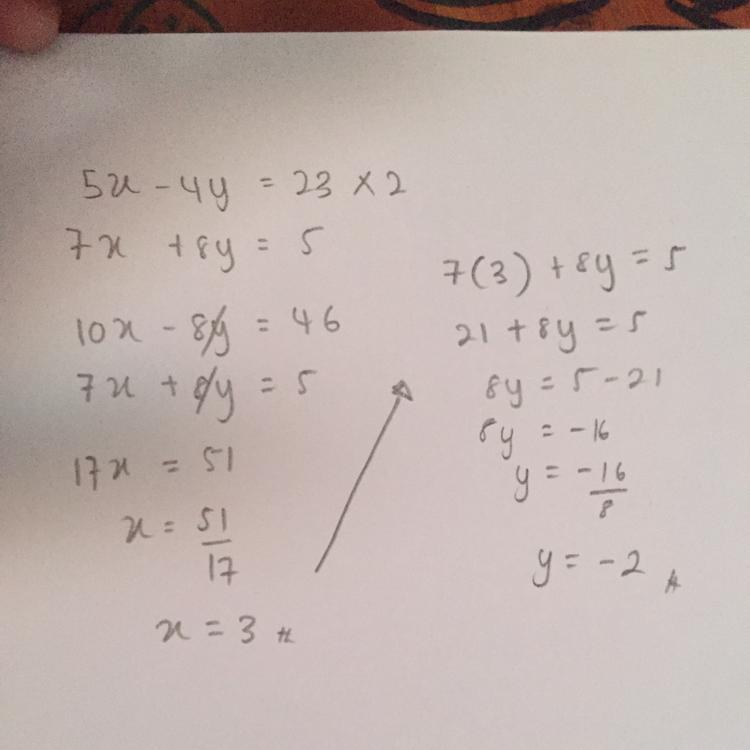 5x - 4y = 23 × 2
7x + 8y = 5
10x - 8y = 46
7x + 8y = 5
17x = 51
x = 51/17
x = 3
7(3) + 8y = 5
21 + 8y = 5
8y = 5 - 21
8y = -16
y = -16/8
y = -2